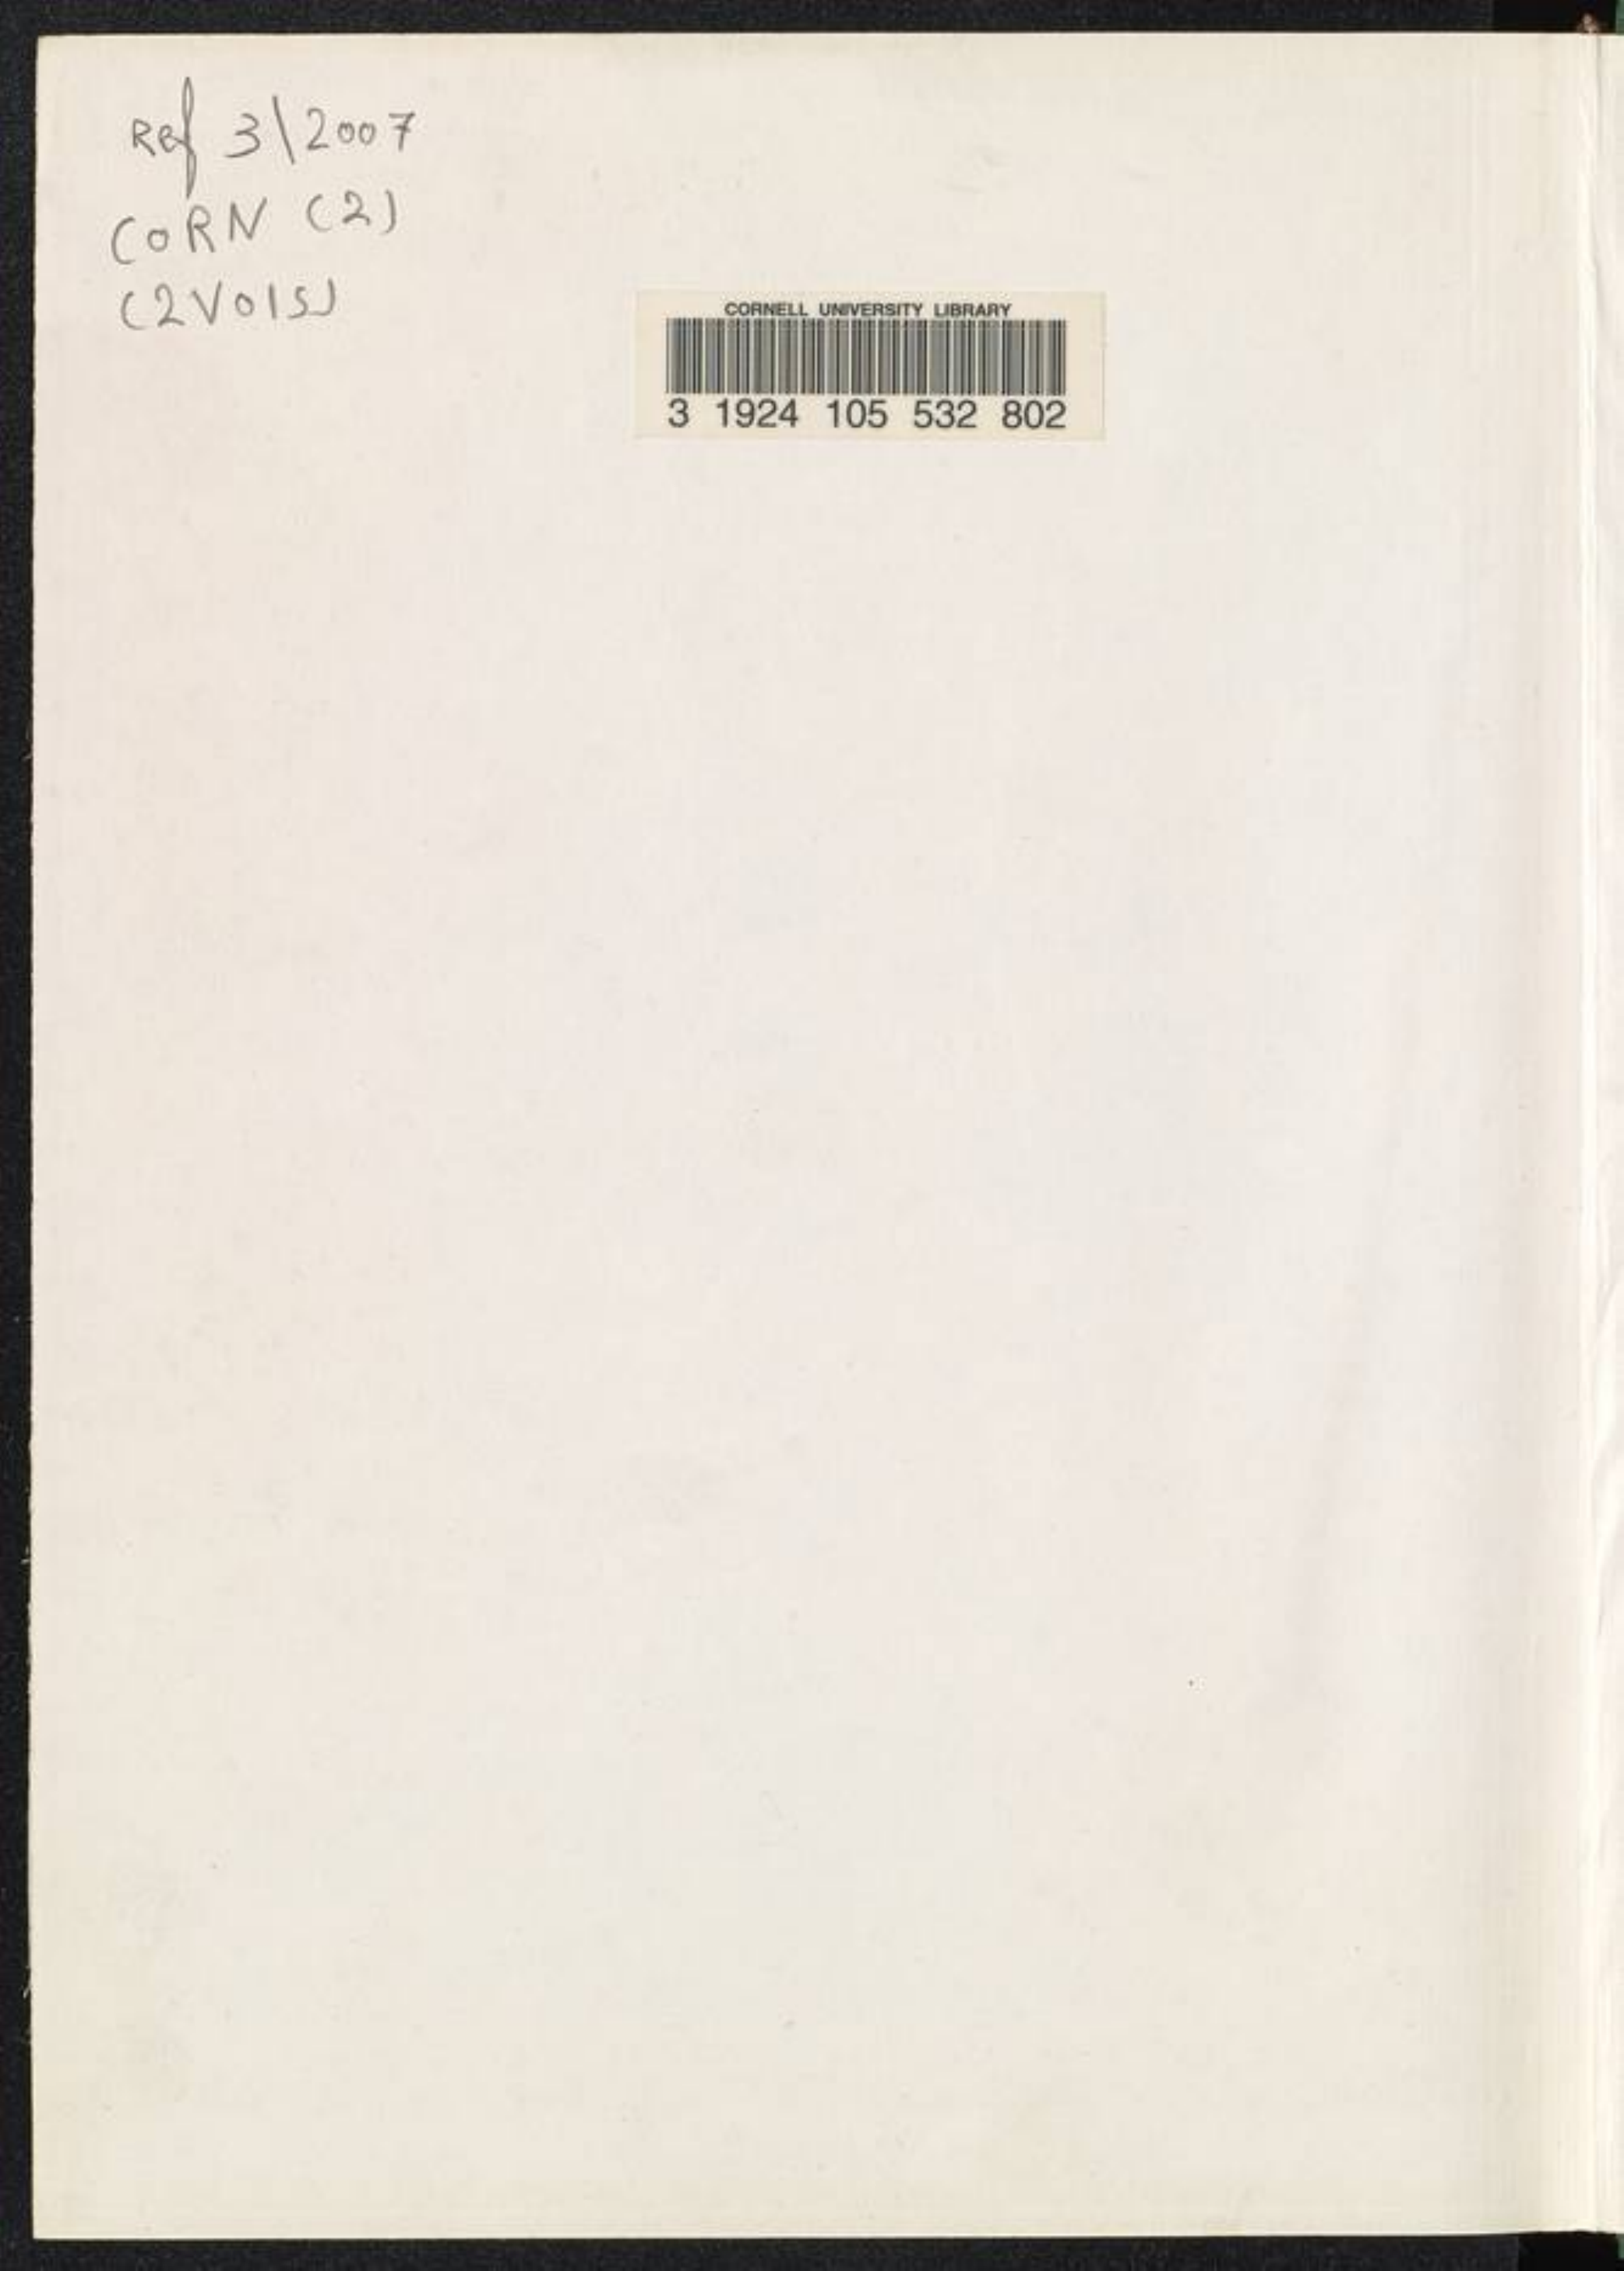 Ref 3\2007
CORN (2)
(2Vols)
CORNELL UNIVERSITY LIBRARY
3 1924 105 532 802